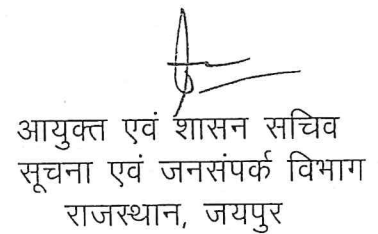 आयुक्त एवं शासन सचिव
सूचना एवं जनसंपर्क विभाग
राजस्थान, जयपुर